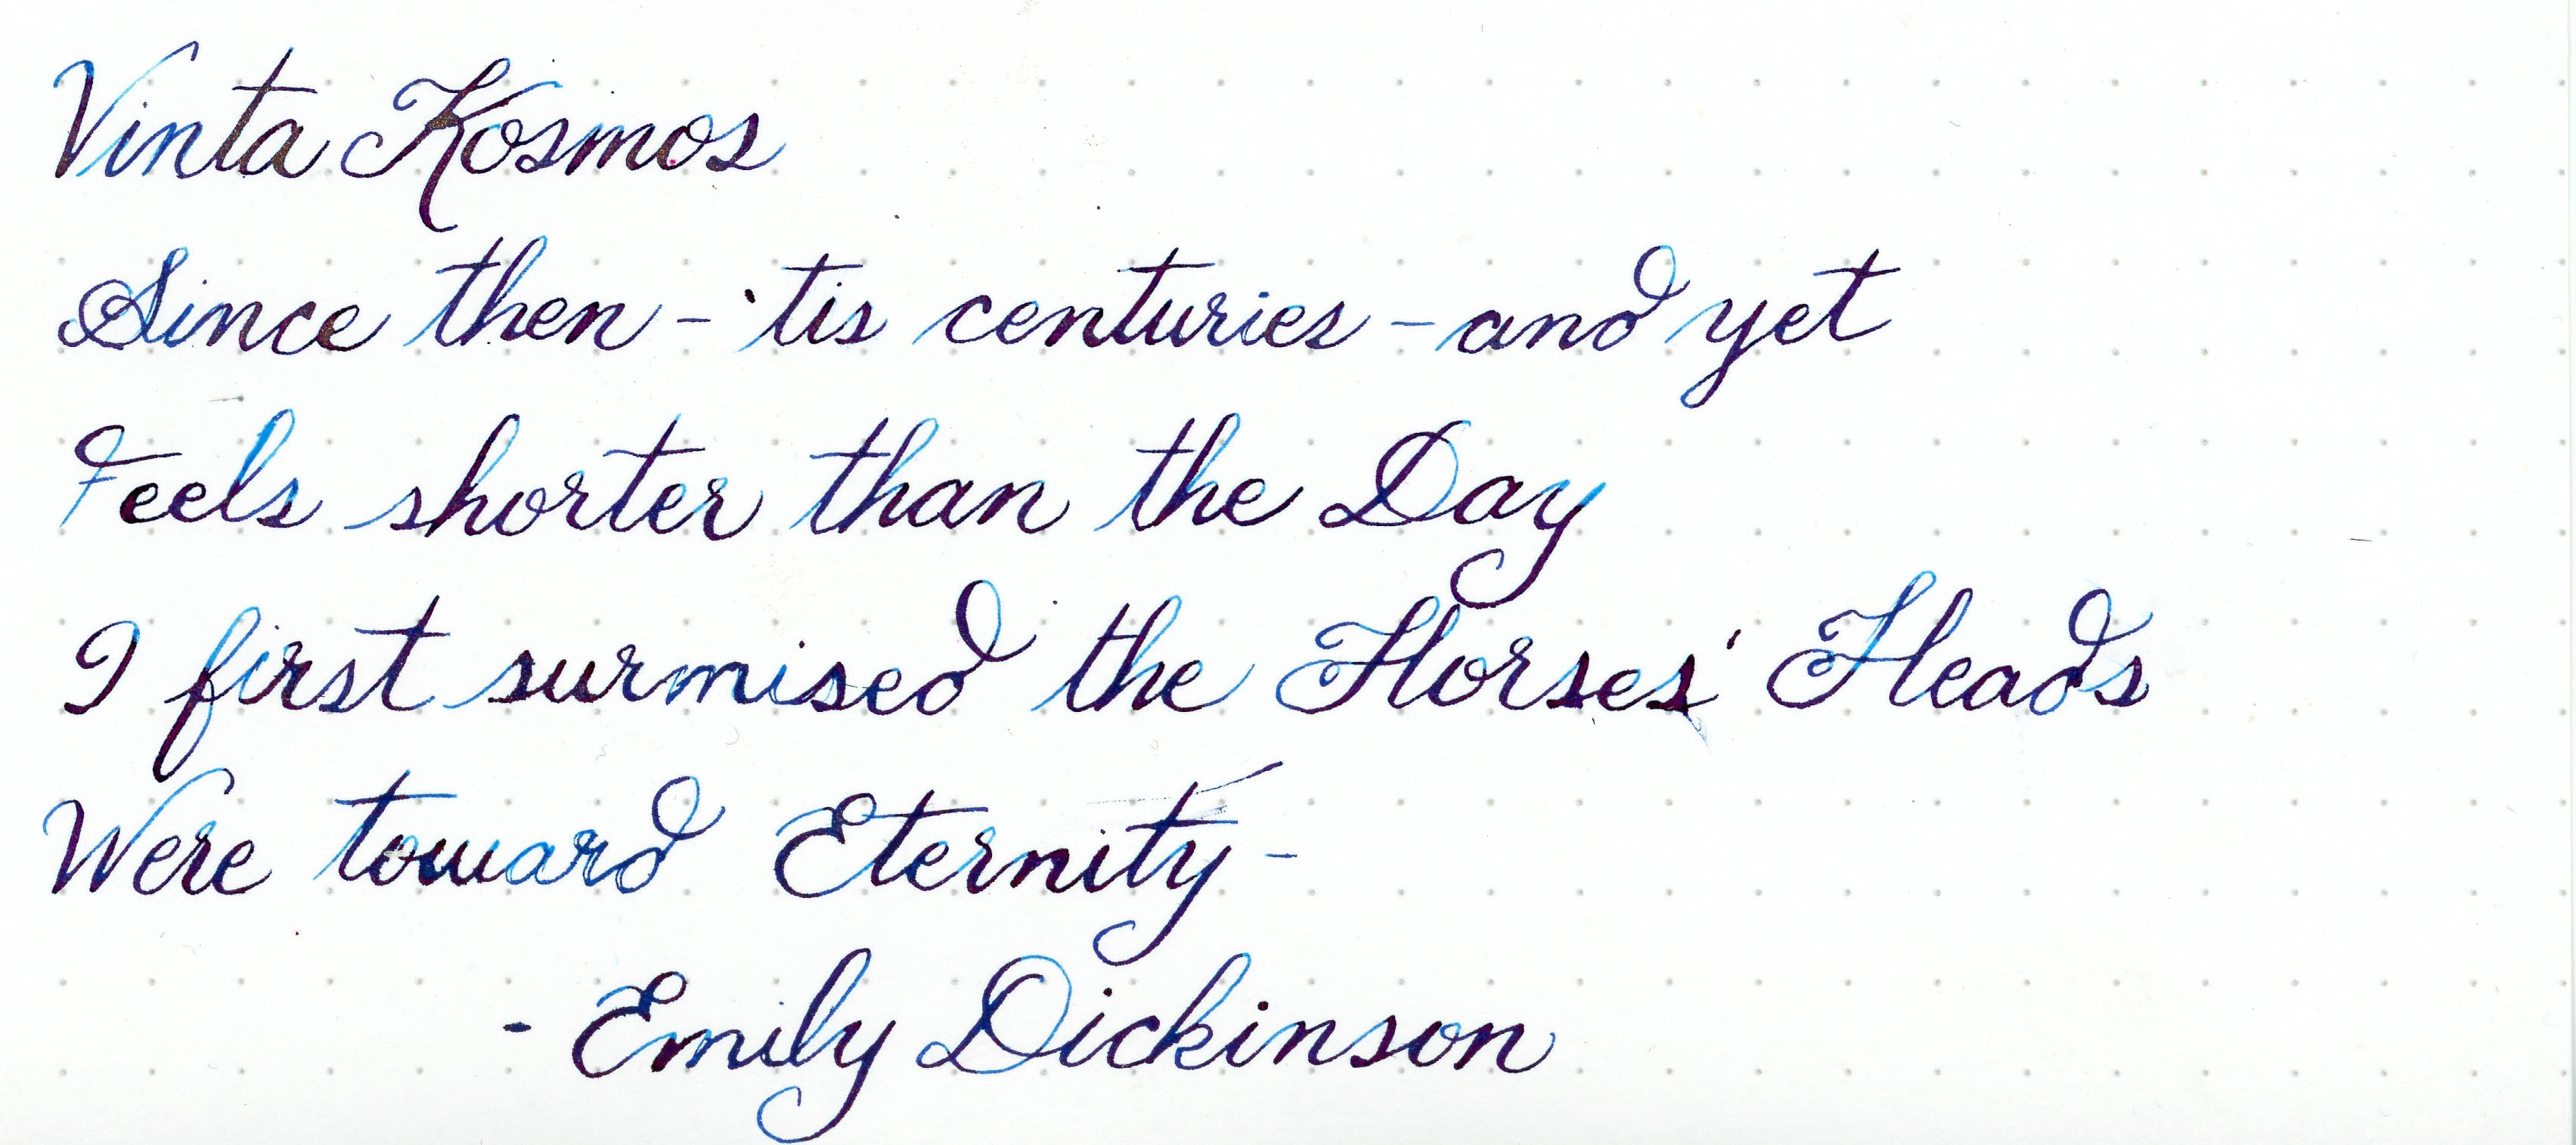 Vinta Kosmos
Since then – 'tis centuries – and yet
Feels shorter than the Day
I first surmised the Horses' Heads
Were toward Eternity –
- Emily Dickinson